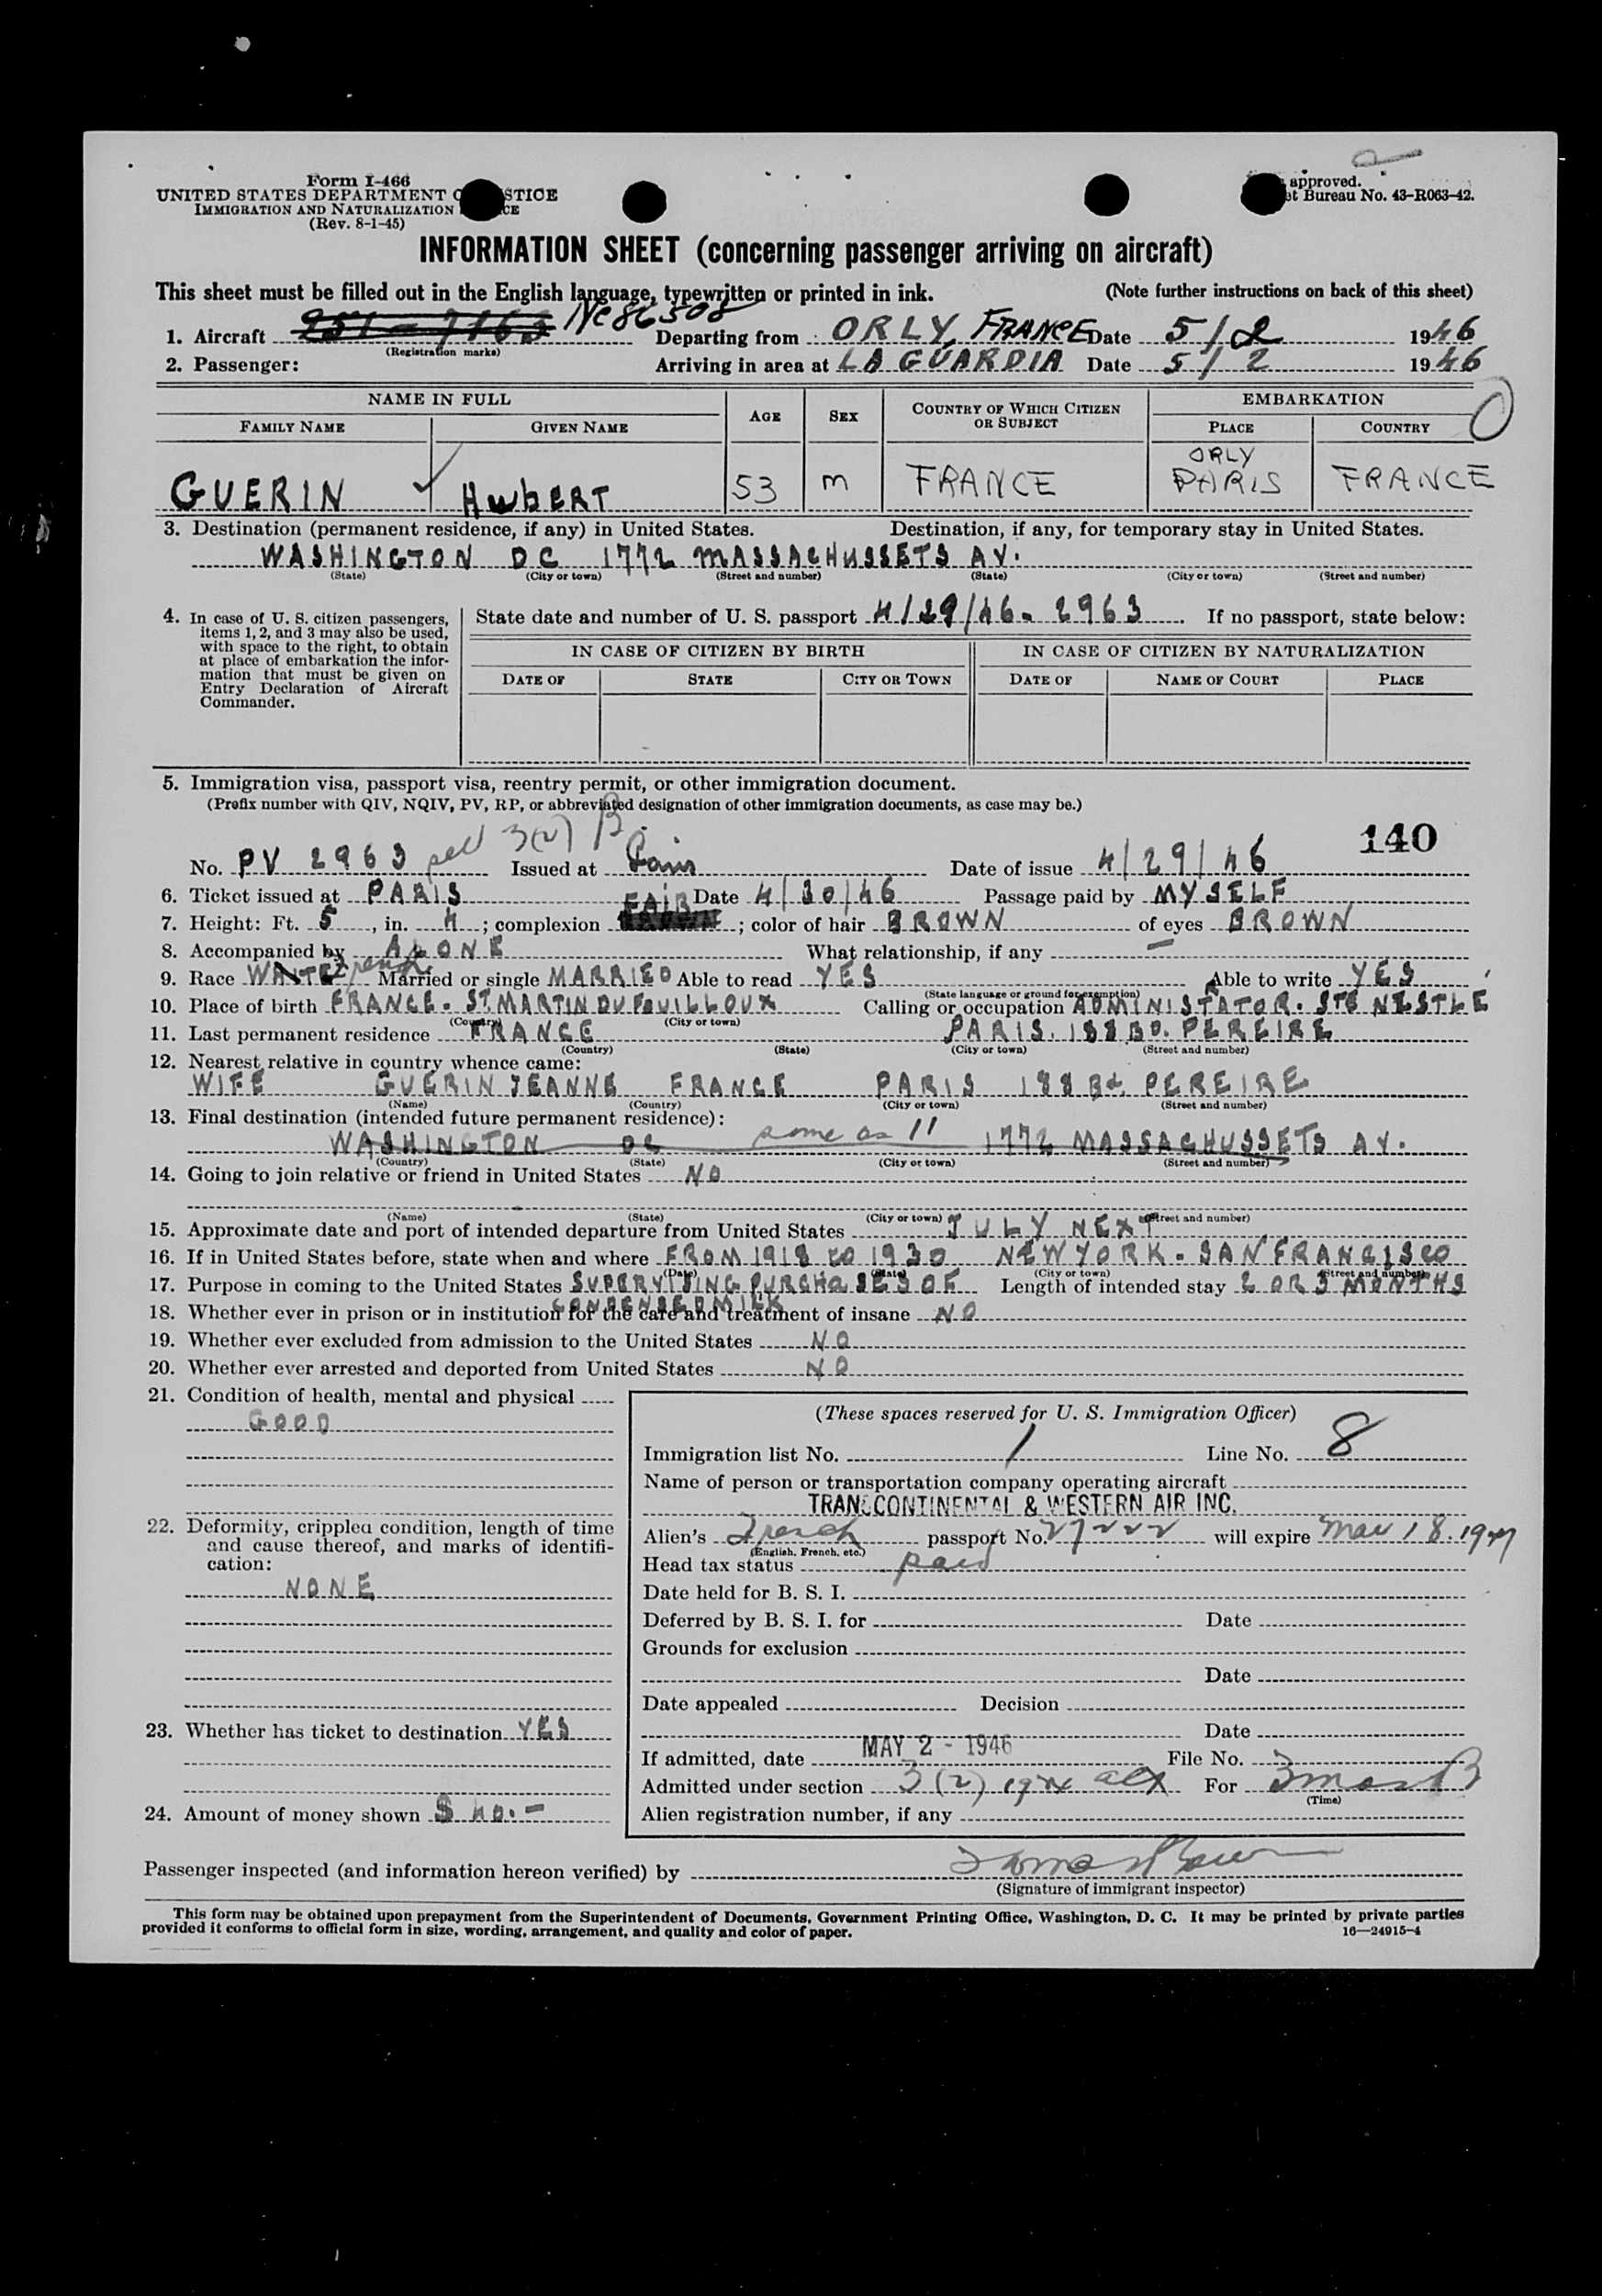 Form I-466
UNITED STATES DEPARTMENT O STICE
IMMIGRATION AND NATURALIZATION CE
(Rev. 8-1-45)
approved.
et Bureau No. 43-R063-42.
INFORMATION SHEET (concerning passenger arriving on aircraft)
This sheet must be filled out in the English language, typewritten or printed in ink. (Note further instructions on back of this sheet)
1. Aircraft NC86508 Departing from ORLY, FRANCE Date 5/2 1946
(Registration marks)
2. Passenger: Arriving in area at LA GUARDIA Date 5/2 1946
NAME IN FULL AGE SEX COUNTRY OF WHICH CITIZEN OR SUBJECT EMBARKATION
FAMILY NAME GIVEN NAME PLACE COUNTRY
ORLY
GUERIN HubERT 53 M FRANCE PARIS FRANCE
3. Destination (permanent residence, if any) in United States. Destination, if any, for temporary stay in United States.
WASHINGTON DC 1772 MASSACHUSSETS AV.
(State) (City or town) (Street and number) (State) (City or town) (Street and number)
4. In case of U. S. citizen passengers, items 1, 2, and 3 may also be used, with space to the right, to obtain at place of embarkation the information that must be given on Entry Declaration of Aircraft Commander.
State date and number of U. S. passport 4/29/46 - 2963 If no passport, state below:
IN CASE OF CITIZEN BY BIRTH IN CASE OF CITIZEN BY NATURALIZATION
DATE OF STATE CITY OR TOWN DATE OF NAME OF COURT PLACE
5. Immigration visa, passport visa, reentry permit, or other immigration document.
(Prefix number with QIV, NQIV, PV, RP, or abbreviated designation of other immigration documents, as case may be.)
3(2) B
140
No. PV 2963 Issued at Paris Date of issue 4/29/46
6. Ticket issued at PARIS Date 4/30/46 Passage paid by MYSELF
7. Height: Ft. 5, in. 4; complexion FAIR; color of hair BROWN of eyes BROWN
8. Accompanied by ALONE What relationship, if any —
9. Race WHITE French Married or single MARRIED Able to read YES Able to write YES
(State language or ground for exemption)
10. Place of birth FRANCE - ST. MARTIN DU FOUILLOUX Calling or occupation ADMINISTATOR. STE NESTLE
(Country) (City or town)
11. Last permanent residence FRANCE PARIS. 188 BD. PEREIRE
(Country) (State) (City or town) (Street and number)
12. Nearest relative in country whence came:
WIFE GUERIN JEANNE FRANCE PARIS 188 Bd. PEREIRE
(Name) (Country) (City or town) (Street and number)
13. Final destination (intended future permanent residence):
WASHINGTON DC same as 11 1772 MASSACHUSSETS AV.
(Country) (State) (City or town) (Street and number)
14. Going to join relative or friend in United States NO
(Name) (State) (City or town) (Street and number)
15. Approximate date and port of intended departure from United States JULY NEXT
16. If in United States before, state when and where FROM 1918 to 1930 NEW YORK - SAN FRANCISCO
(Date) (State) (City or town) (Street and number)
17. Purpose in coming to the United States SUPERVISING PURCHASES OF Length of intended stay 2 OR 3 MONTHS
CONDENSED MILK
18. Whether ever in prison or in institution for the care and treatment of insane NO
19. Whether ever excluded from admission to the United States NO
20. Whether ever arrested and deported from United States NO
21. Condition of health, mental and physical
GOOD
22. Deformity, crippled condition, length of time and cause thereof, and marks of identification:
NONE
23. Whether has ticket to destination YES
24. Amount of money shown $ 40.-
(These spaces reserved for U. S. Immigration Officer)
Immigration list No. 1 Line No. 8
Name of person or transportation company operating aircraft
TRANSCONTINENTAL & WESTERN AIR INC.
Alien's French passport No. 27222 will expire Mar 18. 1947
(English, French, etc.)
Head tax status paid
Date held for B. S. I.
Deferred by B. S. I. for Date
Grounds for exclusion
Date
Date appealed Decision
Date
If admitted, date MAY 2 - 1946 File No.
Admitted under section 3(2) For 3 mos B
(Time)
Alien registration number, if any
Passenger inspected (and information hereon verified) by
(Signature of immigrant inspector)
This form may be obtained upon prepayment from the Superintendent of Documents, Government Printing Office, Washington, D. C. It may be printed by private parties
provided it conforms to official form in size, wording, arrangement, and quality and color of paper. 16—24915-4